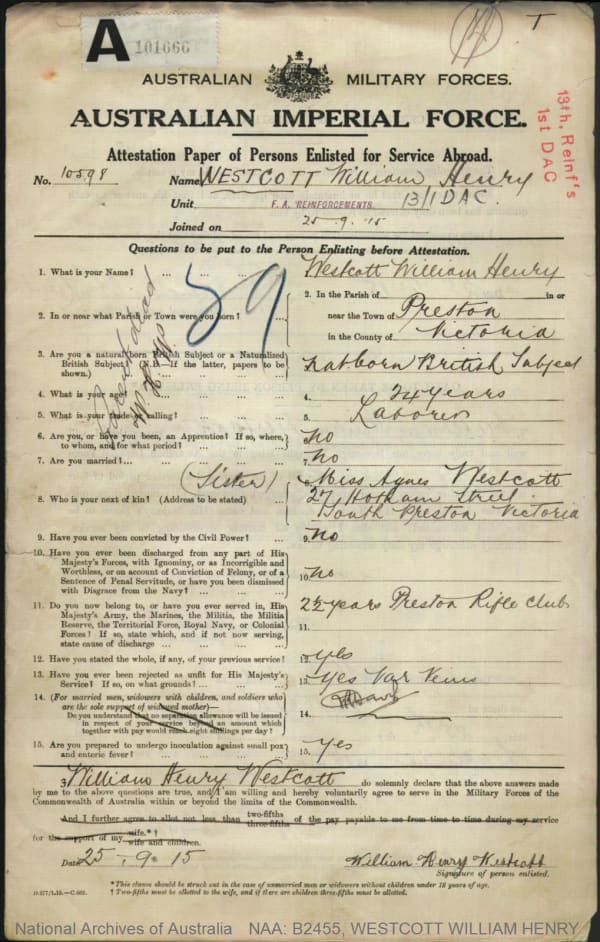 A 101666
T
AUSTRALIAN MILITARY FORCES.
AUSTRALIAN IMPERIAL FORCE.
13th, Reinf's
1st DAC
Attestation Paper of Persons Enlisted for Service Abroad.
No. 10598 Name WESTCOTT William Henry
Unit F. A. REINFORCEMENTS 13/1 DAC.
Joined on 25.9.15
Questions to be put to the Person Enlisting before Attestation.
59
1. What is your Name? ... Westcott William Henry
2. In or near what Parish or Town were you born? ... 2. In the Parish of in or
near the Town of Preston
in the County of Victoria
3. Are you a natural born British Subject or a Naturalized
British Subject? (N.B.—If the latter, papers to be
shown.) ... Natborn British Subject
4. What is your age? 4. 24 years
5. What is your trade or calling? 5. Laborer
6. Are you, or have you been, an Apprentice? If so, where,
to whom, and for what period? ... 6. No
7. Are you married? ... 7. No
8. Who is your next of kin? (Address to be stated) ... (Sister) 8. Miss Agnes Westcott
27 Hotham Street
South Preston Victoria
9. Have you ever been convicted by the Civil Power? 9. No
10. Have you ever been discharged from any part of His
Majesty's Forces, with Ignominy, or as Incorrigible and
Worthless, or on account of Conviction of Felony, or of a
Sentence of Penal Servitude, or have you been dismissed
with Disgrace from the Navy? ... 10. No
11. Do you now belong to, or have you ever served in, His
Majesty's Army, the Marines, the Militia, the Militia
Reserve, the Territorial Force, Royal Navy, or Colonial
Forces? If so, state which, and if not now serving,
state cause of discharge ... 11. 2½ years Preston Rifle Club
12. Have you stated the whole, if any, of your previous service? 12. yes
13. Have you ever been rejected as unfit for His Majesty's
Service? If so, on what grounds? ... 13. Yes Var Veins
14. (For married men, widowers with children, and soldiers who
are the sole support of widowed mother)—
Do you understand that no separation allowance will be issued
in respect of your service beyond an amount which
together with pay would reach eight shillings per day? 14.
15. Are you prepared to undergo inoculation against small pox
and enteric fever? 15. Yes
I, William Henry Westcott do solemnly declare that the above answers made
by me to the above questions are true, and I am willing and hereby voluntarily agree to serve in the Military Forces of the
Commonwealth of Australia within or beyond the limits of the Commonwealth.
And I further agree to allot not less than two-fifths three-fifths of the pay payable to me from time to time during my service
for the support of my wife.*† wife and children.
Date 25.9.15
William Henry Westcott
Signature of person enlisted.
*This clause should be struck out in the case of unmarried men or widowers without children under 18 years of age.
†Two-fifths must be allotted to the wife, and if there are children three-fifths must be allotted.
National Archives of Australia NAA: B2455, WESTCOTT WILLIAM HENRY